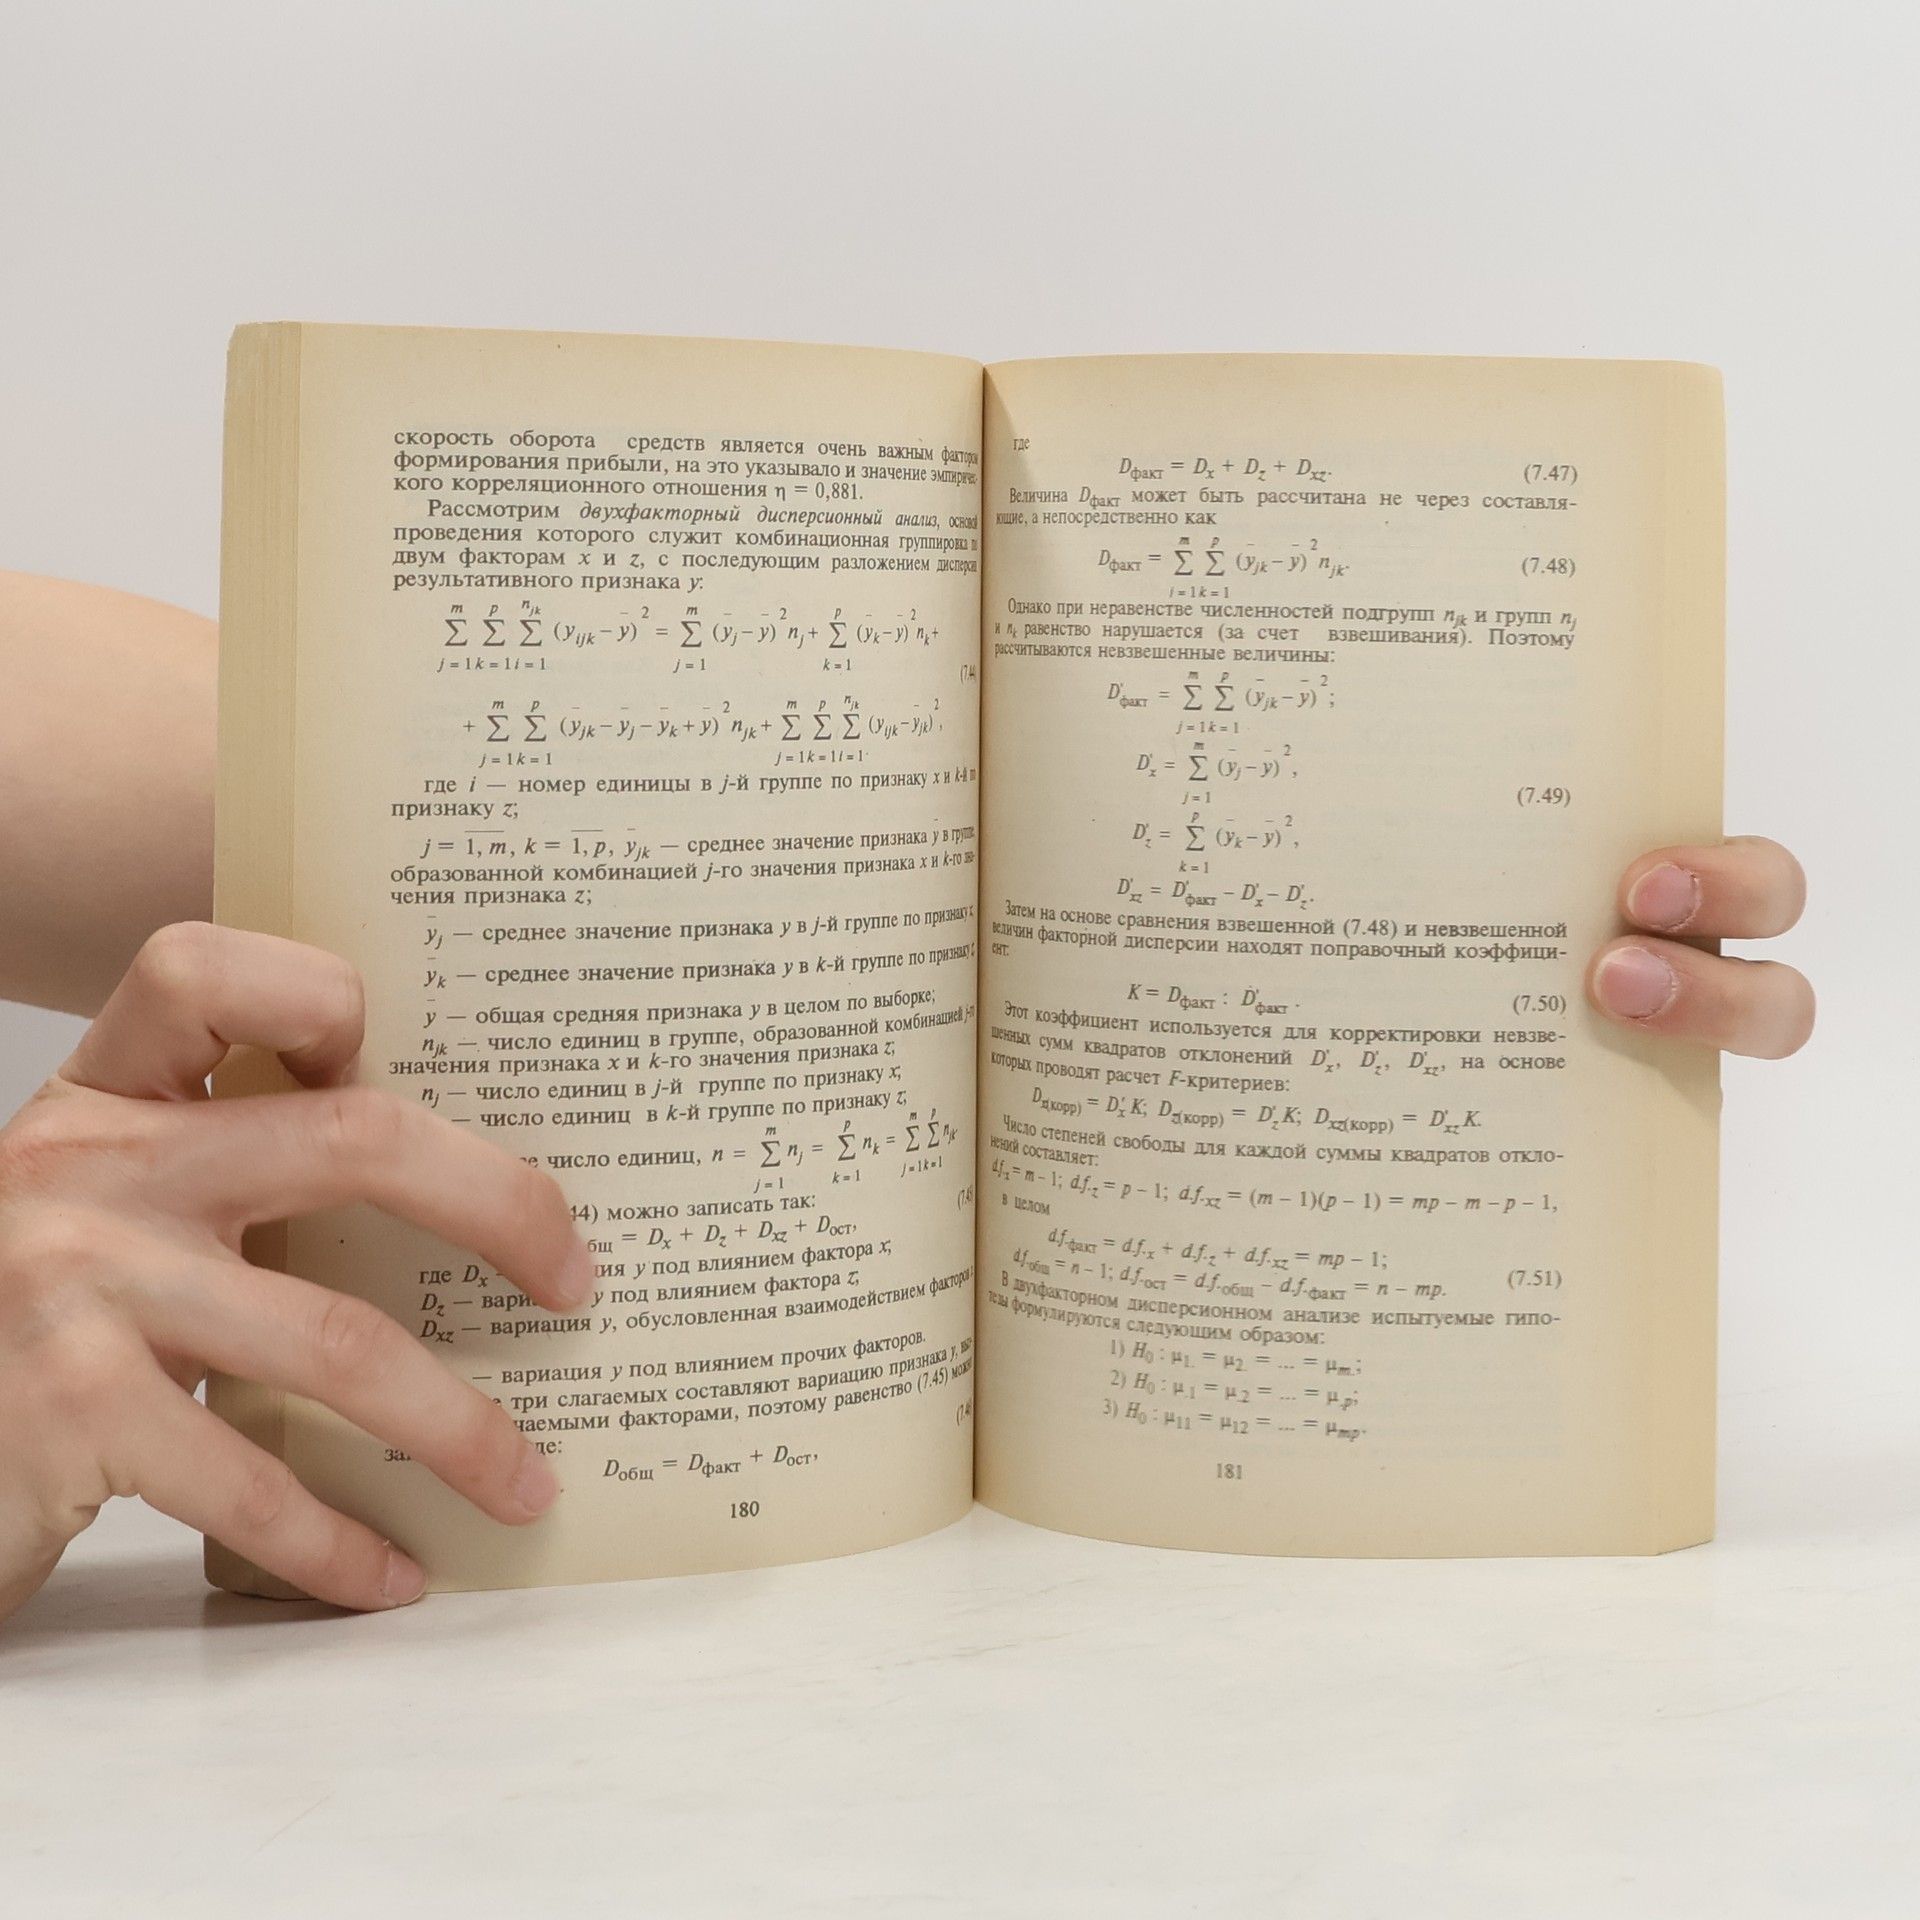 скорость оборота средств является очень важным фактором
формирования прибыли, на это указывало и значение эмпиричес-
кого корреляционного отношения η = 0,881.
Рассмотрим двухфакторный дисперсионный анализ, основой
проведения которого служит комбинационная группировка по
двум факторам x и z, с последующим разложением дисперсии
результативного признака y:
m p n_jk m p
∑ ∑ ∑ (y_ijk – ȳ)² = ∑ (ȳ_j – ȳ)² n_j + ∑ (ȳ_k – ȳ)² n_k +
j = 1 k = 1 i = 1 j = 1 k = 1
(7.44)
m p m p n_jk
+ ∑ ∑ (ȳ_jk – ȳ_j – ȳ_k + ȳ)² n_jk + ∑ ∑ ∑ (y_ijk – ȳ_jk)²,
j = 1 k = 1 j = 1 k = 1 i = 1
где i — номер единицы в j-й группе по признаку x и k-й по
признаку z;
j = 1, m, k = 1, p, ȳ_jk — среднее значение признака y в группе,
образованной комбинацией j-го значения признака x и k-го зна-
чения признака z;
ȳ_j — среднее значение признака y в j-й группе по признаку x;
ȳ_k — среднее значение признака y в k-й группе по признаку z;
ȳ — общая средняя признака y в целом по выборке;
n_jk — число единиц в группе, образованной комбинацией j-го
значения признака x и k-го значения признака z;
n_j — число единиц в j-й группе по признаку x;
— число единиц в k-й группе по признаку z;
m p m p
число единиц, n = ∑ n_j = ∑ n_k = ∑ ∑ n_jk
j = 1 k = 1 j = 1 k = 1
44) можно записать так:
бщ = D_x + D_z + D_xz + D_ост,
где D_x – ия y под влиянием фактора x;
D_z — вари y под влиянием фактора z;
D_xz — вариация y, обусловленная взаимодействием факторов
— вариация y под влиянием прочих факторов.
три слагаемых составляют вариацию признака y,
чаемыми факторами, поэтому равенство (7.45) можно
де:
D_общ = D_факт + D_ост,
180
где
D_факт = D_x + D_z + D_xz. (7.47)
Величина D_факт может быть рассчитана не через составля-
ющие, а непосредственно как
m p
D_факт = ∑ ∑ (ȳ_jk – ȳ)² n_jk. (7.48)
j = 1 k = 1
Однако при неравенстве численностей подгрупп n_jk и групп n_j
и n_k равенство нарушается (за счет взвешивания). Поэтому
рассчитываются невзвешенные величины:
m p
D'_факт = ∑ ∑ (ȳ_jk – ȳ)²;
j = 1 k = 1
m
D'_x = ∑ (ȳ_j – ȳ)²,
j = 1
(7.49)
p
D'_z = ∑ (ȳ_k – ȳ)²,
k = 1
D'_xz = D'_факт – D'_x – D'_z.
Затем на основе сравнения взвешенной (7.48) и невзвешенной
величин факторной дисперсии находят поправочный коэффици-
ент:
K = D_факт : D'_факт . (7.50)
Этот коэффициент используется для корректировки невзве-
шенных сумм квадратов отклонений D'_x, D'_z, D'_xz, на основе
которых проводят расчет F-критериев:
D_x(корр) = D'_x K; D_z(корр) = D'_z K; D_xz(корр) = D'_xz K.
Число степеней свободы для каждой суммы квадратов откло-
нений составляет:
d.f._x = m – 1; d.f._z = p – 1; d.f._xz = (m – 1)(p – 1) = mp – m – p – 1,
в целом
d.f._факт = d.f._x + d.f._z + d.f._xz = mp – 1;
d.f._общ = n – 1; d.f._ост = d.f._общ – d.f._факт = n – mp. (7.51)
В двухфакторном дисперсионном анализе испытуемые гипо-
тезы формулируются следующим образом:
1) H₀ : μ_1. = μ_2. = ... = μ_m.;
2) H₀ : μ_.1 = μ_.2 = ... = μ_.p;
3) H₀ : μ_11 = μ_12 = ... = μ_mp.
181